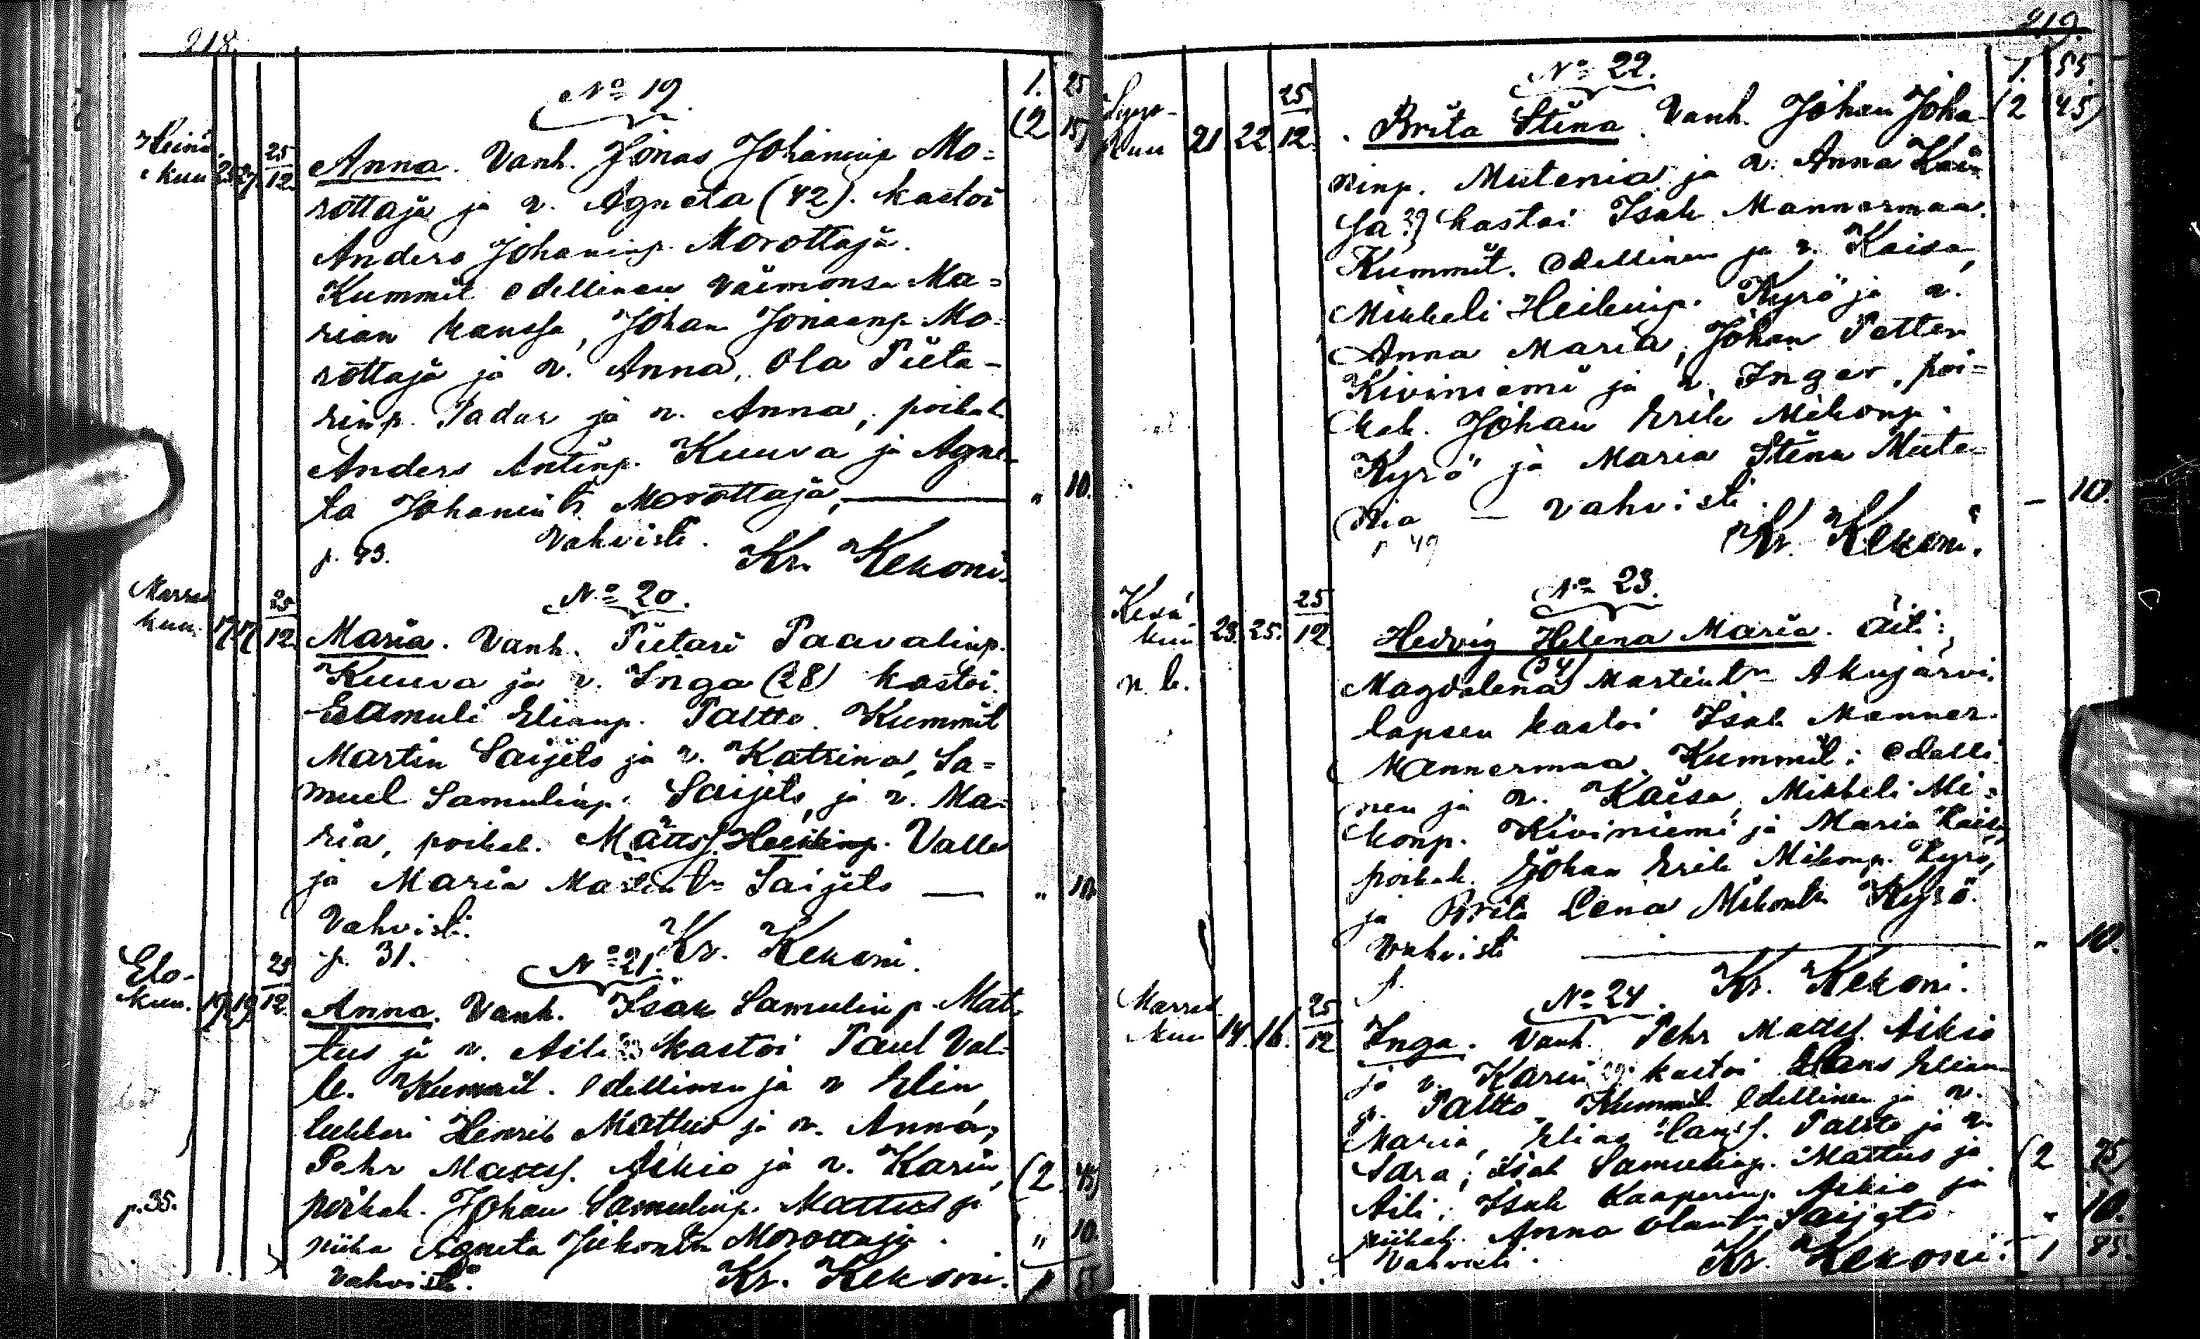 218.
No 19.
1. 25
(2 15)
Heinä
kuu 25 27 25/12.
Anna. Vanh. Jonas Johaninp. Mo=
rottaja ja v. Agneta (42). kastoi
Anders Johaninp. Morottaja.
Kummit edellinen vaimonsa Ma=
rian kanssa, Johan Jonaanp. Mo=
rottaja ja v. Anna, Ola Pieta-
rinp. Padar ja v. Anna, poikak.
Anders Antinp. Kuuva ja Agne-
ta Johanintr Morottaja,
" 10.
Vahvisti.
p. 73.
Kr. Kekoni.
No 20.
Marras
kuu. 17 17 25/12.
Maria. Vanh. Pietari Paavalinp.
Kuuva ja v. Inga (28) kastoi.
Samuli Elianp. Paltto. Kummit
Martin Saijets ja v. Katrina, Sa=
muel Samulinp. Saijets, ja v. Ma-
ria, poikak. Mattss. Heikinp. Valle
ja Maria Martintr Saijets —
" 10.
Vahvisti.
p. 31.
Kr. Kekoni.
No 21.
Elo-
kuu. 17 19 25/12.
Anna. Vanh. Isak Samulinp. Mat-
tus ja v. Aili 33 kastoi Paul Val-
le. Kummit. edellinen ja v Elin,
lukkari Henrik Mattus ja v. Anna,
Pehr Mattss. Aikio ja v. Karin,
(2 45)
poikak. Johan Samulinp. Mattus ja
p. 35.
piika Agneta Juhontr Morottaja.
" 10.
Vahvisti.
Kr. Kekoni.
219.
No 22.
1. 55.
(2 45)
Syys-
kuu 21 22 25/12.
Brita Stina. Vanh. Johan Joha-
ninp. Mutenia ja v. Anna Kai-
sa 39 kastoi Isak Mannermaa.
Kummit. edellinen ja v. Kaisa,
Mikkeli Heikinp. Kyrö ja v.
Anna Maria, Johan Petter
Kiviniemi ja v. Inger, poi-
kak. Johan Erik Mikonp.
Kyrö ja Maria Stina Mute-
nia — vahvisti.
– 10.
p 49
Kr. Kekoni.
No 23.
Kesä
kuu 23. 25. 25/12
n. b.
Hedvig Helena Maria. Äiti:
Magdalena (34) Martintr Akujärvi.
lapsen kastoi Isak Manner-
Mannermaa. Kummit: edelli
nen ja v. Kaisa, Mikkeli Mi=
konp. Kiviniemi ja Maria Kaisa,
poikak. Johan Erik Mikonp. Kyrö,
ja Brita Lena Mikontr Kyrö.
Vahvisti
" 10.
p.
Kr. Kekoni.
No 24.
Marras
kuu 14. 16. 25/12
Inga. Vanh. Pehr Mattss. Aikio
ja v. Karin 29 kastoi Hans Elian
p. Paltto. Kummit edellinen ja v.
Maria, Elias Hanss. Paltto ja v.
Sara, Isak Samulinp. Mattus ja
(2 75)
Aili, Isak Kaaperinp. Aikio ja
piikak. Anna Olantr Saijets
" 10.
Vahvisti.
Kr. Kekoni.
1 85.